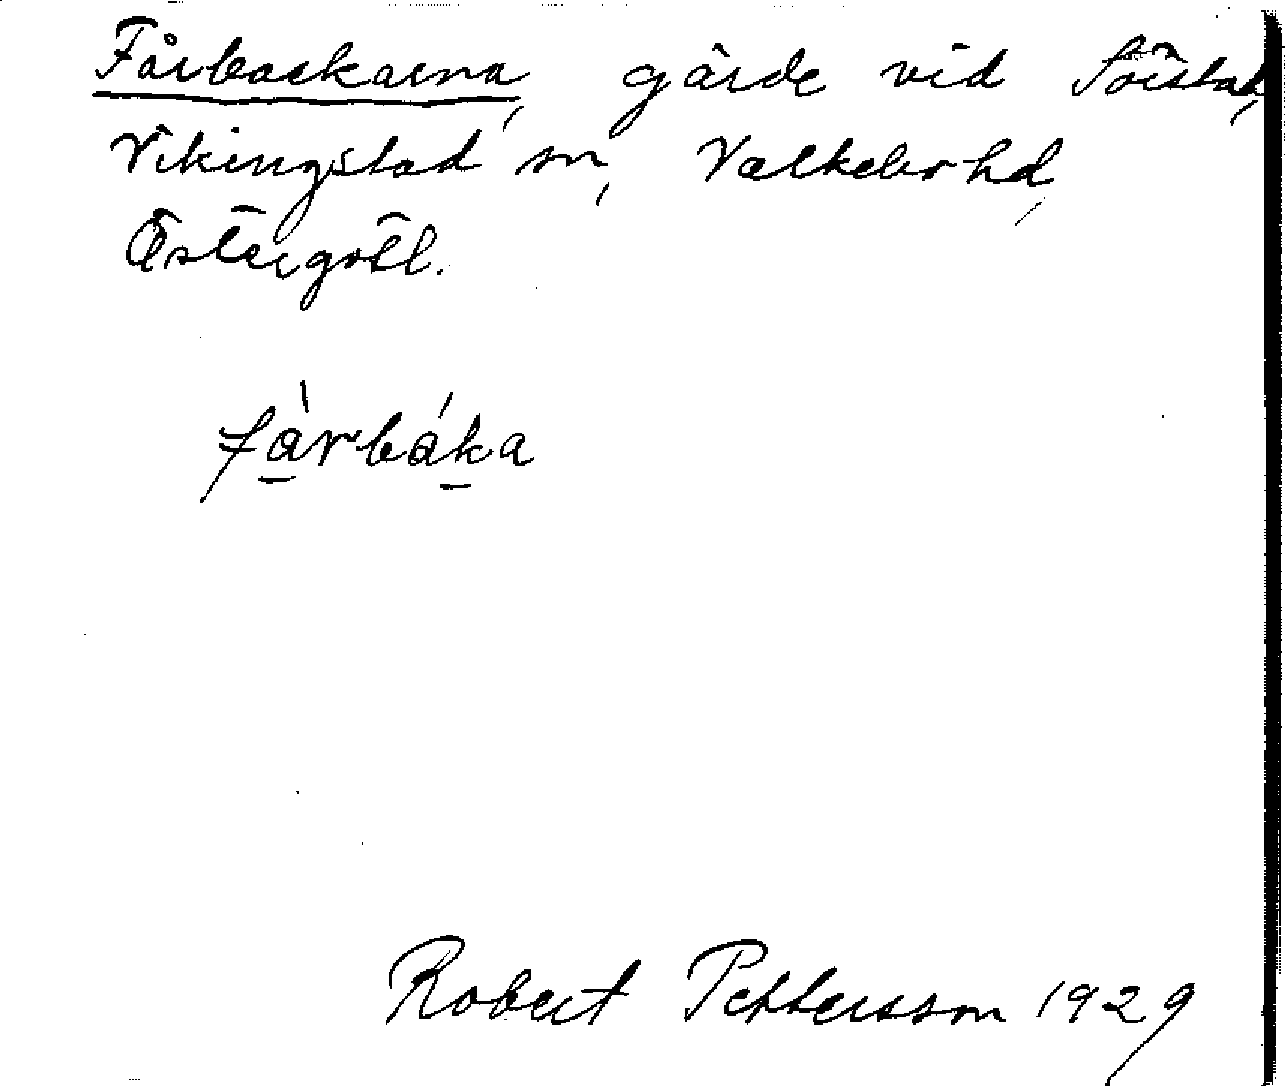 Fårbackarna, gärde vid
Vikingstad sn, Valkebo hd,
Östergötl.
fàrbáka
Robert Pettersson 1929